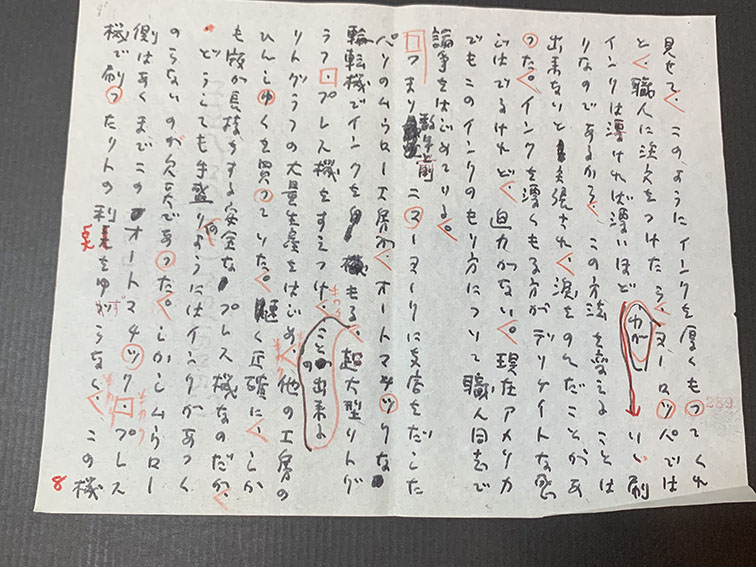 見せて、このようにインクを厚くもってくれ
と、職人に注文をつけたら、ヨーロッパでは
インクは薄ければ薄いほどいい刷
りなのであるから、この方法を変えることは
出来ないと主張され、涙をのんだことがあ
った。インクを薄くもる方がデリケイトな感
じはでるけれど、迫力がない。現在アメリカ
でもこのインクのもり方について職人同志で
論争をはじめている。
つまり数年前ニューヨークに支店をだした
パリのムウロー工房が、オートマチックな
輪転機でインクをもる、超大型リトグ
ラフ・プレス機をすえつけ、
リトグラフの大量生産をはじめ、他の工房の
ひんしゅくを買っていた。軽く正確に、しか
も版が長持ちする安全なプレス機なのだが、
どうしても手盛りようにはインクがあつく
のらないのが欠点であった。しかしムウロー
側はあくまでこのオートマチック・プレス
機で刷ったリトの利点をゆずらなく、この機
8
289